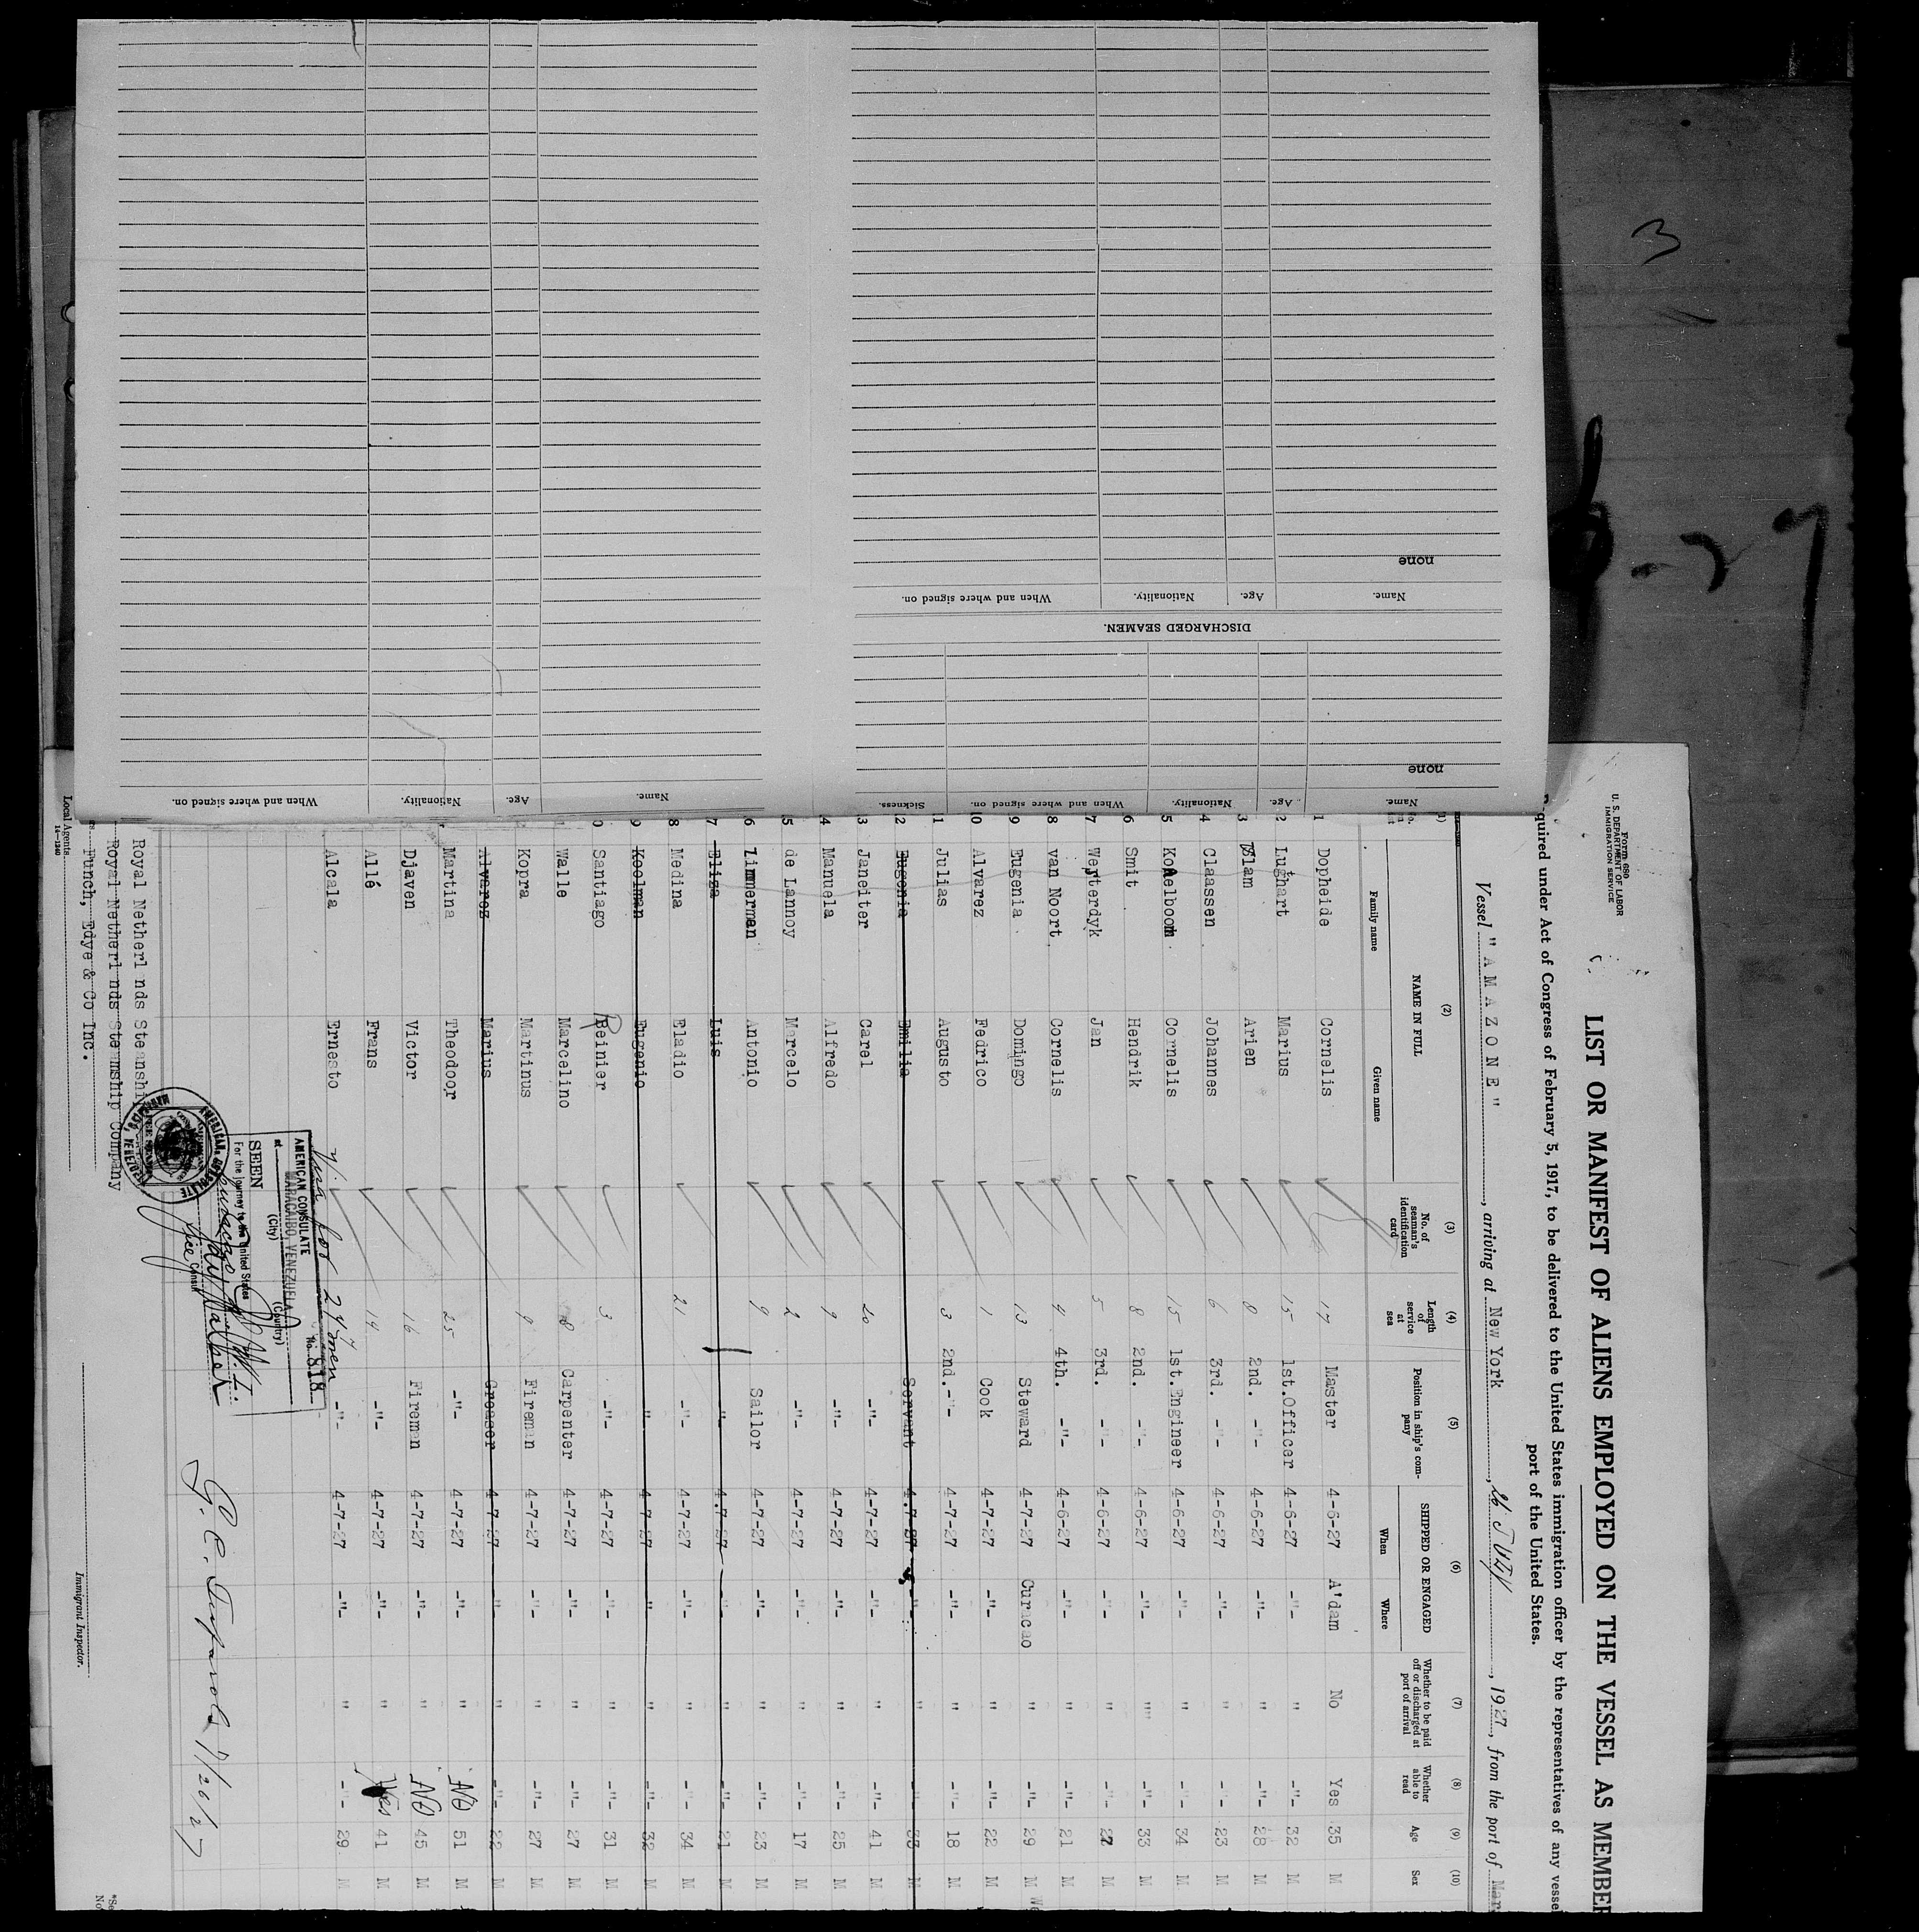 Form 680
U. S. DEPARTMENT OF LABOR
IMMIGRATION SERVICE
LIST OR MANIFEST OF ALIENS EMPLOYED ON THE VESSEL AS MEMBER
quired under Act of Congress of February 5, 1917, to be delivered to the United States immigration officer by the representatives of any vessel
port of the United States.
Vessel "AMAZONE", arriving at New York, 1927, from the port of Mar
(2) (3) (4) (5) (6) (7) (8) (9) (10)
NAME IN FULL
Family name Given name
No. of seaman's identification card
Length of service at sea
Position in ship's company
SHIPPED OR ENGAGED
When Where
Whether to be paid off or discharged at port of arrival
Whether able to read
Age
Sex
1 Dopheide Cornelis 17 Master 4-6-27 A'dam No Yes 35 M
2 Lughart Marius 15 1st.Officer 4-6-27 -"- " -"- 32 M
3 Slam Arien 8 2nd. -"- 4-6-27 -"- " -"- 28 M
4 Claassen Johannes 6 3rd. -"- 4-6-27 -"- " -"- 23 M
5 Cornelis 15 1st.Engineer 4-6-27 -"- " -"- 34 M
6 Smit Hendrik 8 2nd. -"- 4-6-27 -"- " -"- 33 M
7 Westerdyk Jan 5 3rd. -"- 4-6-27 -"- " -"- 27 M
8 van Noort Cornelis 4 4th. -"- 4-6-27 -"- " -"- 21 M
9 Eugenia Domingo 13 Steward 4-7-27 Curacao " -"- 29 M
10 Alvarez Fedrico 1 Cook 4-7-27 -"- " -"- 22 M
11 Julias Augusto 3 2nd.-"- 4-7-27 -"- " -"- 18 M
12 Eugenia Emilia Servant 4-7-27 -"- " -"- 33 M
3 Janeiter Carel 20 -"- 4-7-27 -"- " -"- 41 M
4 Manuela Alfredo 9 -"- 4-7-27 -"- " -"- 25 M
5 de Lannoy Marcelo 2 -"- 4-7-27 -"- " -"- 17 M
6 Zimmerman Antonio 9 Sailor 4-7-27 -"- " -"- 23 M
7 Eliza Luis -"- 4-7-27 -"- " -"- 21 M
8 Medina Eladio 21 -"- 4-7-27 -"- " -"- 34 M
9 Koolman Eugenio " 4-7-27 " " -"- 32 M
0 Santiago Reinier 3 -"- 4-7-27 -"- " -"- 31 M
Walle Marcelino 8 Carpenter 4-7-27 -"- " -"- 27 M
Kopra Martinus 9 Fireman 4-7-27 -"- " -"- 27 M
Alvarez Marius Greaser 4-7-27 -"- " -"- 22 M
Martina Theodoor 25 -"- 4-7-27 -"- " NO 51 M
Djaven Victor 16 Fireman 4-7-27 -"- " NO 45 M
Allé Frans 14 -"- 4-7-27 -"- " Yes 41 M
Alcala Ernesto 7 -"- 4-7-27 -"- " -"- 29 M
Visa for 24 men
AMERICAN CONSULATE
at MARACAIBO, VENEZUELA
(City) (Country)
No. 818
SEEN
For the journey to the United States
Vice Consul
AMERICAN CONSULATE
MARACAIBO, VENEZUELA
7/20/27
Royal Netherl nds Steamship
Royal Netherl nds Steamship Company
Funch, Edye & Co Inc.
Local Agents
14—1240
Immigrant Inspector.
Name. Age. Nationality. When and where signed on. Sickness.
none
DISCHARGED SEAMEN.
Name. Age. Nationality. When and where signed on.
none
Name. Age. Nationality. When and where signed on.
3
-27